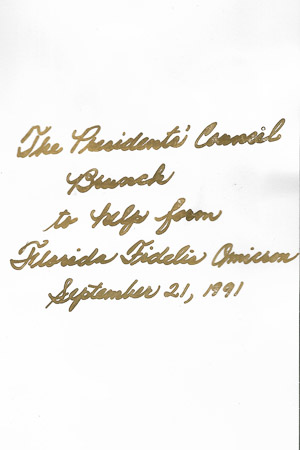 The Presidents' Council
Brunch
to help form
Florida Fidelis Omicron
September 21, 1991